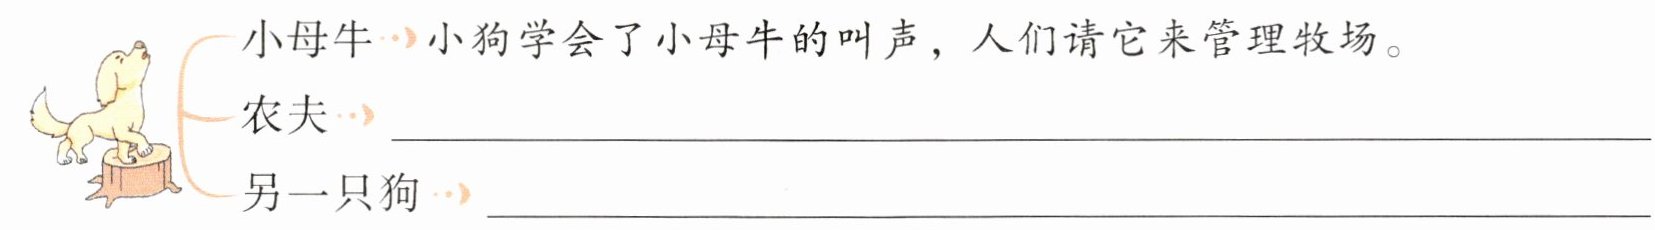 小母牛 小狗学会了小母牛的叫声，人们请它来管理牧场。
农夫
另一只狗